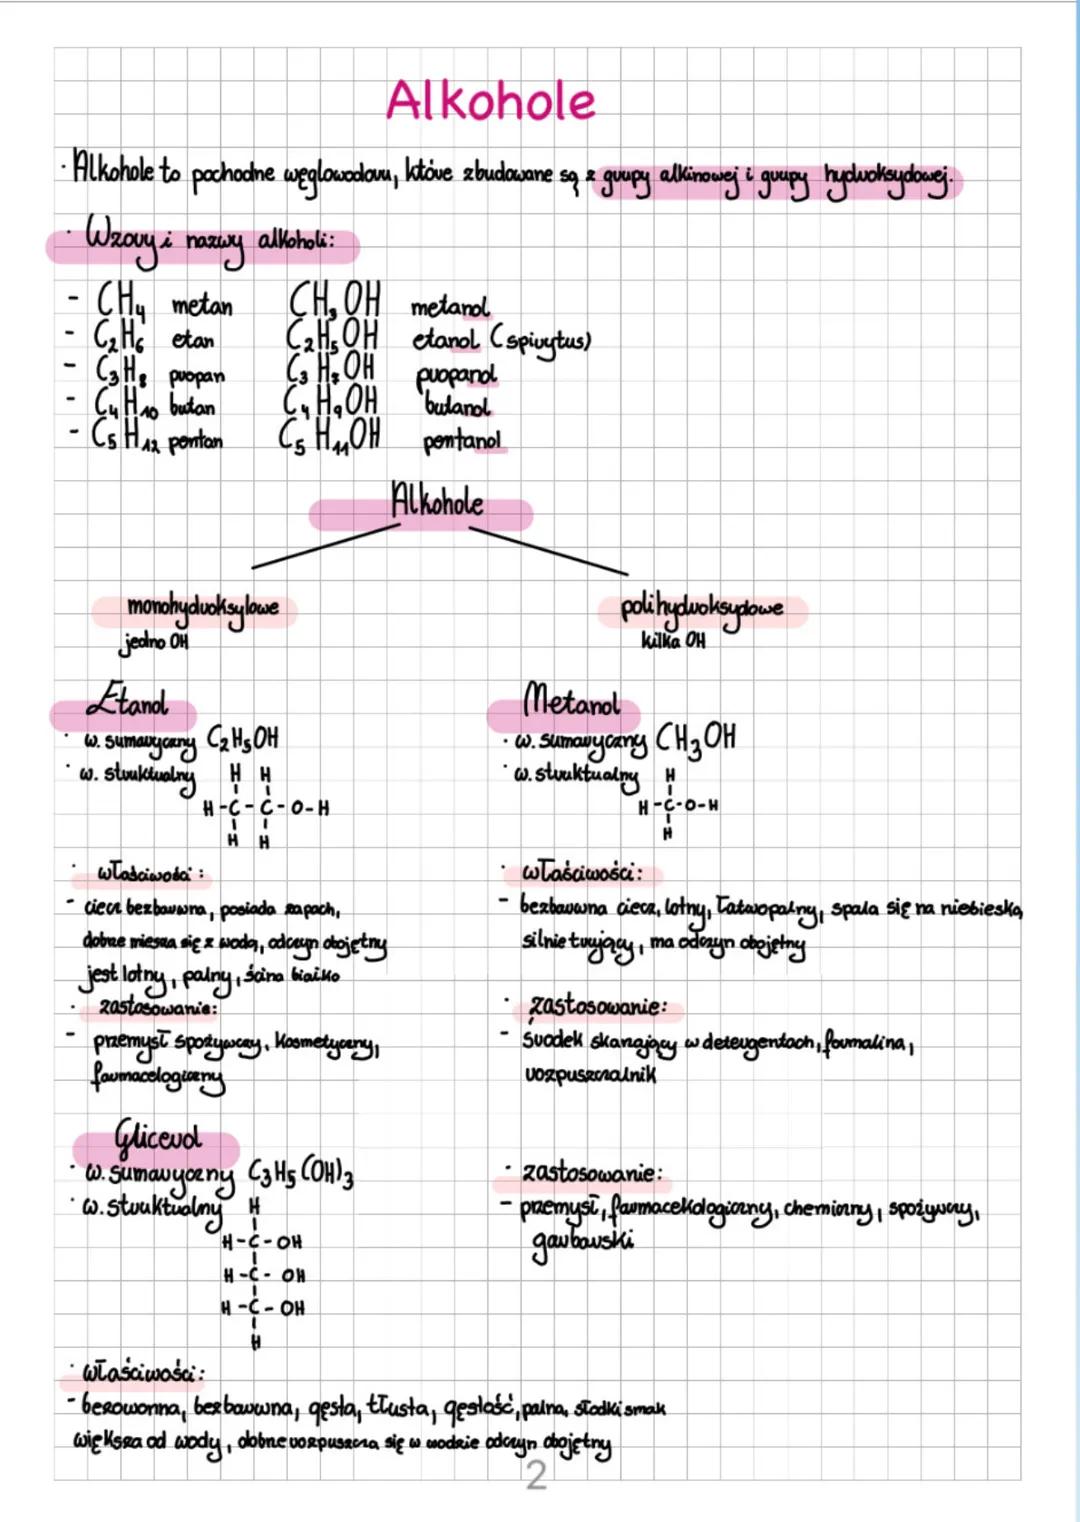 Alkohole
· Alkohole to pochodne węglowodoru, które zbudowane są z grupy alkinowej i grupy hydroksydowej.
· Wzory i nazwy alkoholi:
- CH₄ metan CH₃OH metanol
- C₂H₆ etan C₂H₅OH etanol (spirytus)
- C₃H₈ propan C₃H₇OH propanol
- C₄H₁₀ butan C₄H₉OH butanol
- C₅H₁₂ pentan C₅H₁₁OH pentanol
Alkohole
monohydroksylowe polihydroksydowe
jedno OH kilka OH
Etanol
· w. sumaryczny C₂H₅OH
· w. strukturalny H H
H-C-C-O-H
H H
· właściwości:
- ciecz bezbarwna, posiada zapach,
dobrze miesza się z wodą, odczyn obojętny
jest lotny, palny, ścina białko
· zastosowanie:
- przemysł spożywczy, kosmetyczny,
farmacelogiczny
Metanol
· w. sumaryczny CH₃OH
· w. struktualny H
H-C-O-H
H
· właściwości:
- bezbarwna ciecz, lotny, łatwopalny, spala się na niebiesko,
silnie trujący, ma odczyn obojętny
· zastosowanie:
- środek skanający w detergentach, formalina,
rozpuszczalnik
Glicerol
· w. sumaryczny C₃H₅(OH)₃
· w. struktualny H
H-C-OH
H-C-OH
H-C-OH
H
· zastosowanie:
- przemysł, farmacekologiczny, chemiczny, spożywczy,
garbarski
· właściwości:
- bezwonna, bezbarwna, gęsta, tłusta, gęstość, palna, słodki smak
większa od wody, dobrze rozpuszcza się w wodzie odczyn obojętny
2